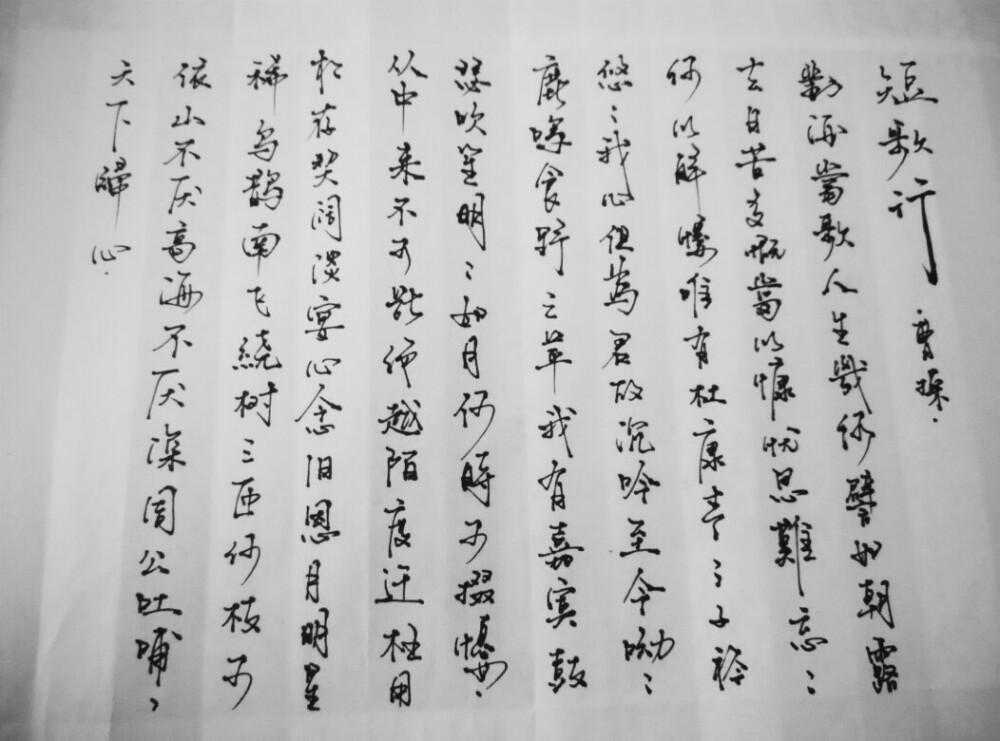 短歌行 曹操
對酒當歌人生幾何譬如朝露
去日苦多慨當以慷忧思難忘
何以解憂唯有杜康青々子衿
悠々我心但為君故沉吟至今呦々
鹿鳴食野之苹我有嘉賓鼓
瑟吹笙明々如月何時可掇憂
从中来不可斷绝越陌度阡枉用
相存契阔談宴心念旧恩月明星
稀乌鹊南飞繞树三匝何枝可
依山不厌高海不厌深周公吐哺
天下歸心